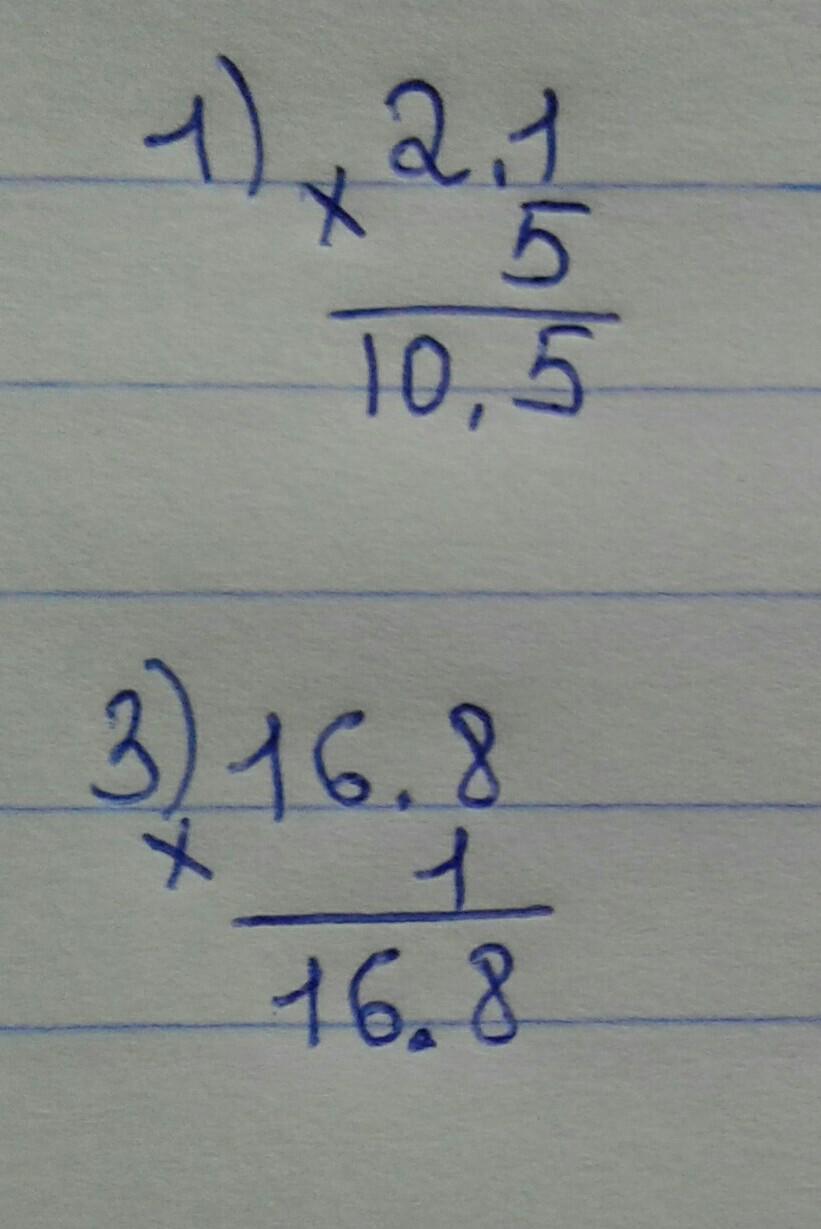 1) 2.1
× 5
10.5
3) 16.8
× 1
16.8